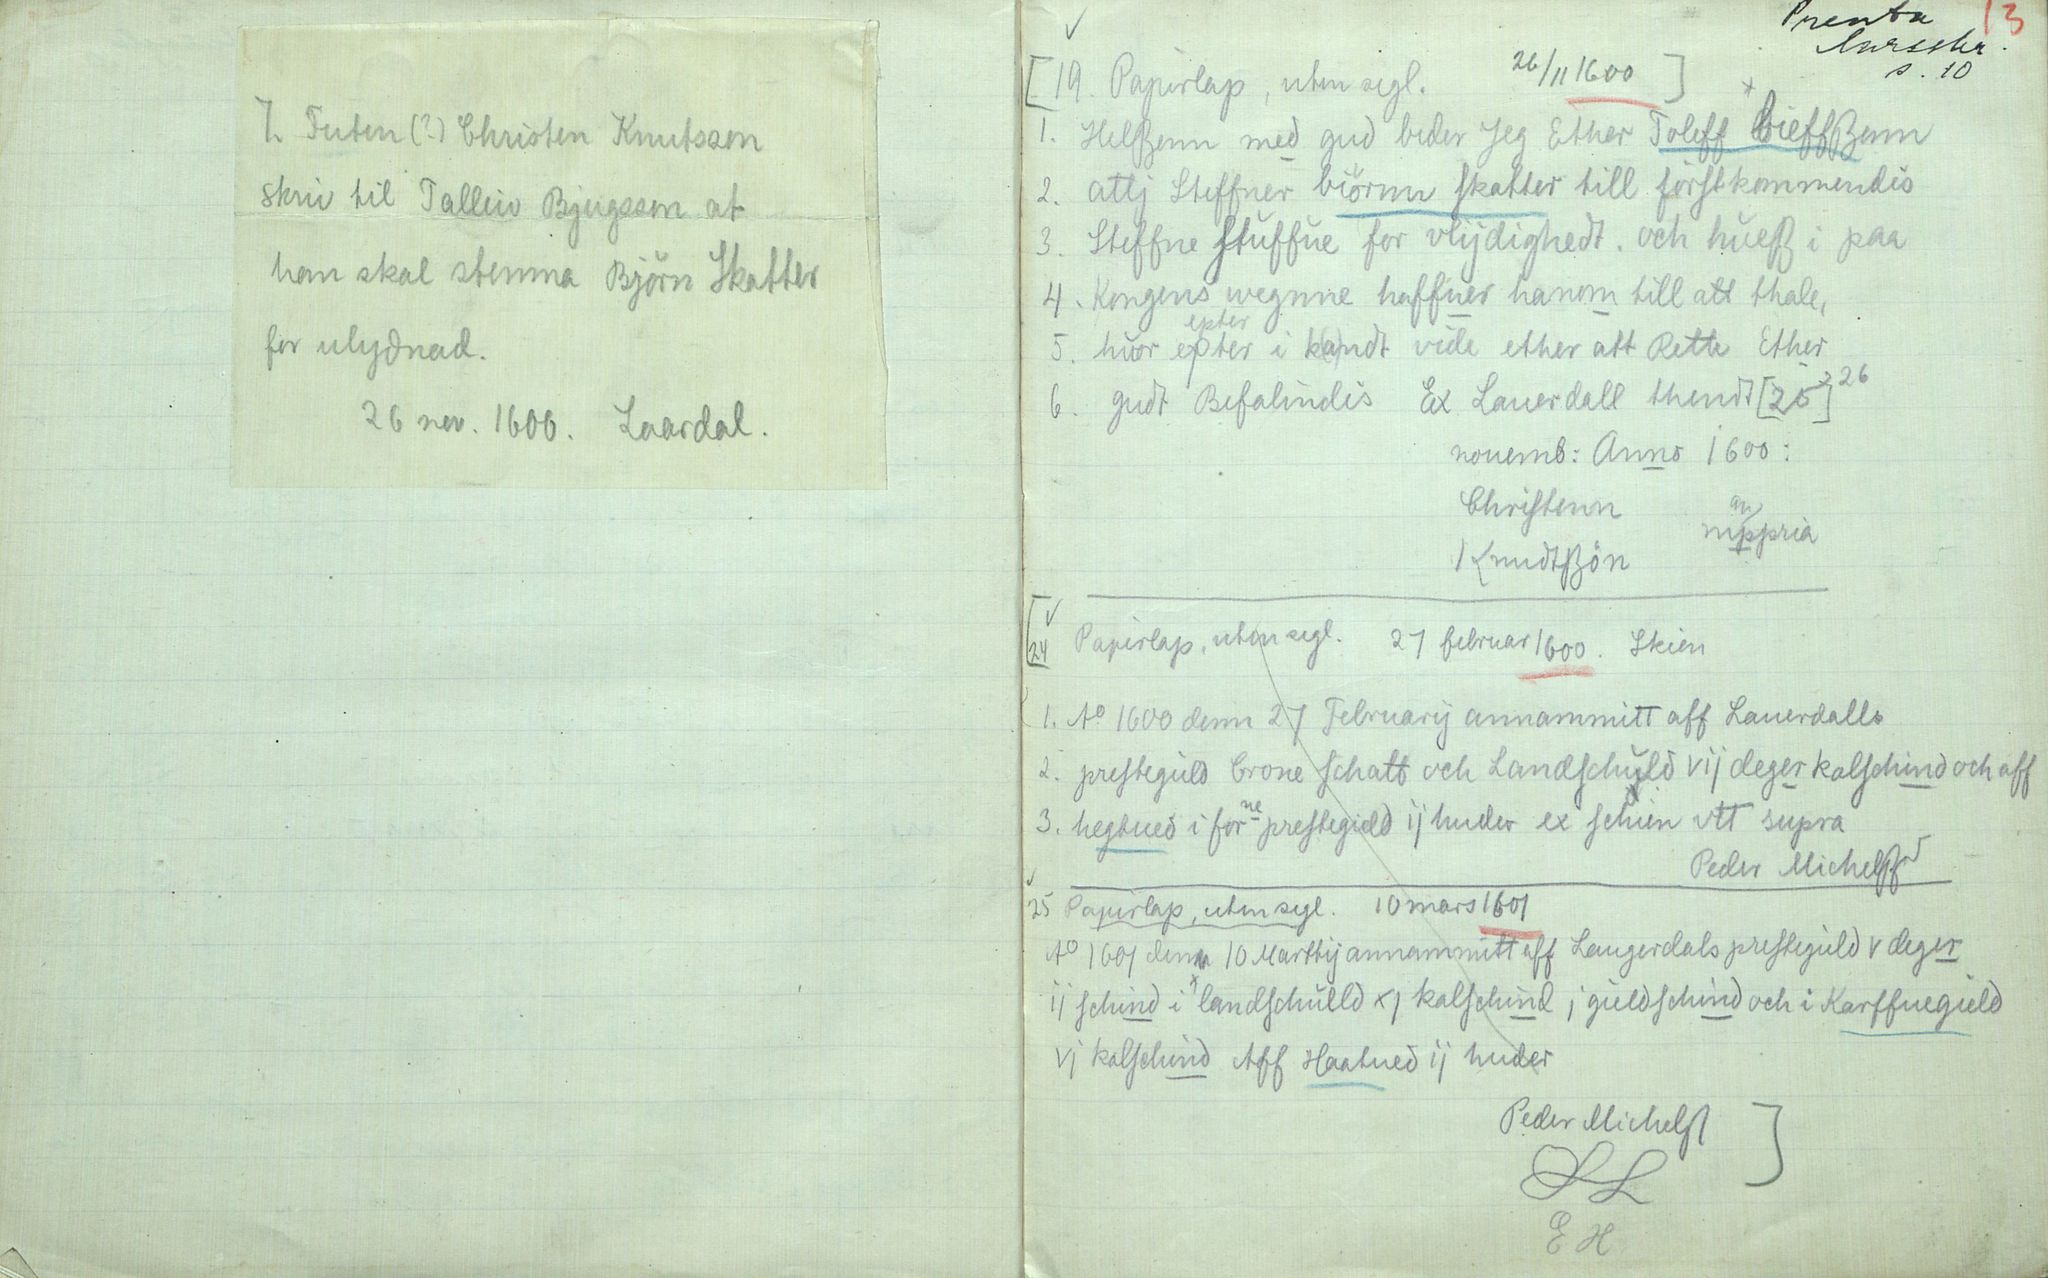 7. Futen (?) Christen Knutsson
skriv til Talleiv Bjugsson at
han skal stemna Björn Skatter
for ulydnad.
26 nov. 1600. Laardal.
Prenta 13
s. 10
[19. Papirlap, uten segl. 26/11 1600 ]
1. Helßenn med gud beder Jeg Ether Toleff bieffßenn
2. attj Steffner biörnn skatter till förstkommendis
3. Steffne stuffue for vlydighedt. och hueß i paa
4. Kongens wegnne haffuer hanom till att thale,
epter
5. huor epter i kandt vide ether att Rette Ether
6. gudt Befalindis Ex Lauerdall thendt [25] 26
nouemb: Anno 1600:
Christenn
an
mppria
Knudtßön
[24 Papirlap, uten segl. 27 februar 1600. Skien
1. Ao 1600 denn 27 Februarij annammitt aff Lauerdalls
2. presteguld Crone schatt och Landschuld vij deger kalschind och aff
3. hegtued i forne prestegield ij huder ex schien vtt supra
Peder Michelß
25 Papirlap, uten segl. 10 mars 1601
Ao 1601 denn 10 Marttij annammitt aff Laugerdals prestegield v deger
ij schind i landschulld xj kalschind j gieldschind och i Karffuegield
vj kalschind Aff Haatued ij huder
Peder Michelß
E H